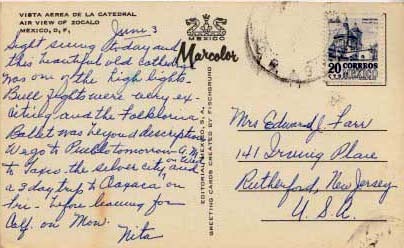 VISTA AEREA DE LA CATEDRAL
AIR VIEW OF ZOCALO
MEXICO, D, F,
June 3
Sight seeing today and
this beautiful old Cathedral
was one of the high lights.
Bull fights were very ex-
citing and the Folklorica
Ballet was beyond description
We go to Puebla tomorrow
on Wed.
to Taxco, the silver city, and
a 3 day trip to Oaxaca on
Fri - before leaving for
Calf. on Mon.
Nita
MEXICO
Marcolor
EDITORIAL MEXICO, S. A.
GREETING CARDS CREATED BY FISCHGRUND
20 CORREOS
MEXICO
Mrs Edward J. Farr
141 Irving Place
Rutherford, New Jersey
U. S. A.